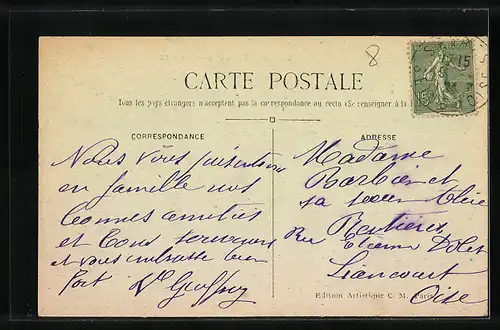 8
CARTE POSTALE
Tous les pays étrangers n'acceptent pas la correspondance au recto (Se renseigner à la
CORRESPONDANCE
Nous vous présentons
en famille nos
bonnes amitiés
et bons souvenirs
et vous embrasse bien
fort
ADRESSE
Madame
Barbier et
sa soeur
Rentières
Rue Etienne Dolet
Liancourt
Oise
Edition Artistique C. M. Paris
15